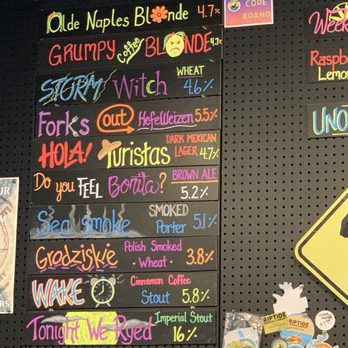 Olde Naples Blonde 4.7%
CORE
BRAND
Grumpy Coffee Blonde 4.%
STORM Witch WHEAT 4.6%
Forks out HefeWeizen 5.5%
HOLA! Turistas DARK MEXICAN LAGER 4.7%
Do you FEEL Bonita? BROWN ALE 5.2%
Sea smoke SMOKED Porter 5.1%
Grodziskie Polish Smoked Wheat 3.8%
WAKE Cinnamon Coffee Stout 5.8%
Tonight We Ryed Imperial Stout 16%
Week
Raspb
Lemon
UNO
RIPTIDE